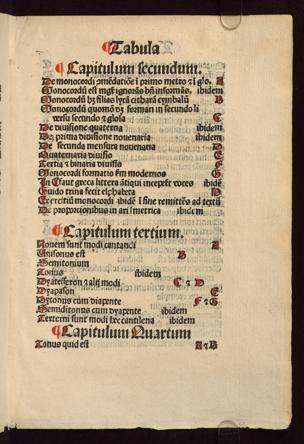 ¶Tabula
¶Capitulum secundum.
De monocordi cōmēdatiōe ī primo metro ⁊ ī glo. A
Monocordū est mgr̄ ignorās bn̄ informās, ibidem
Monocordū hȝ filias lyrā citharā cymbalū B
Monocordū quomō hȝ formari in secundo li
versu secundo ⁊ glosa C
De diuisione quaterna ibidem
De prima diuisione nouenaria ibidem
De secunda mensura nouenaria D
Quaternaria diuisio E
Tertia ⁊ binaria diuisio F
Monocordi formatio ẜm modernos G
In Γaut greca littera ātiqui incepert̄ voces ibidē
Guido trina fecit alphabeta H
Exercitiū monocordi ibidē ī fine remittēs ad textū
De proporcionibus in arismetrica ibidem
¶Capitulum tertium.
Nouem sunt modi cantandi A
Unisonus est B
Semitonium
Tonus ibidem
Dyatesseron ⁊ alij modi C ⁊ D
Dyapason E
Dytonus cum diapente F ⁊ G
Semiditonus cum dyapente ibidem
Terterni sunt modi hec cantilena ibidem
¶Capitulum Quartum
Tonus quid est A ⁊ B